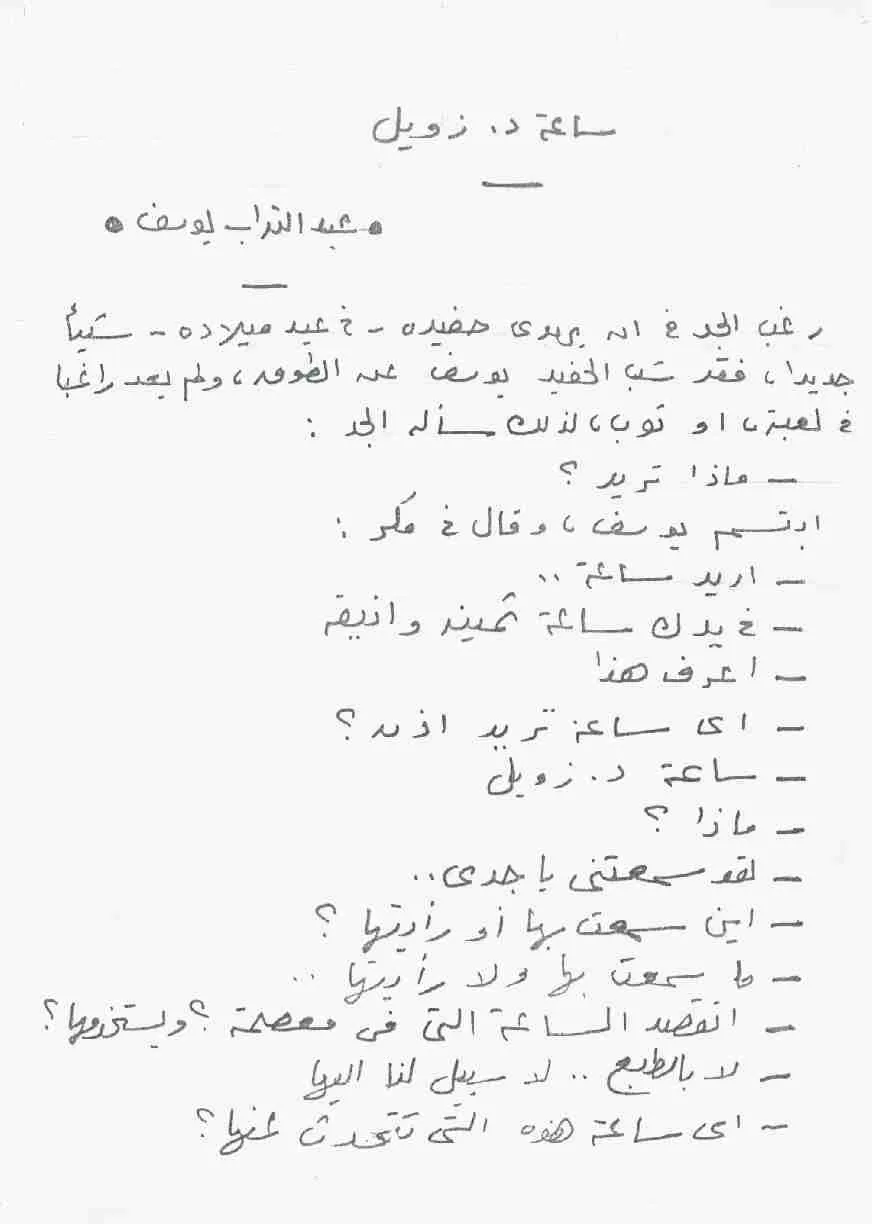 ساعة د. زويل
• عبد التواب يوسف •
رغب الجد في ان يهدى حفيده - في عيد ميلاده - شيئأ
جديدا، فقد شب الحفيد يوسف عن الطوق، ولم يعد راغبا
في لعبة، او ثوب، لذلك سأله الجد :
- ماذا تريد ؟
ابتسم يوسف، وقال في مكر :
- اريد ساعة ..
- في يدك ساعة ثمينه وانيقه
- اعرف هذا
- اى ساعة تريد اذن ؟
- ساعة د. زويل
- ماذا ؟
- لقد سمعتنى يا جدى..
- اين سمعت بها أو رأيتها ؟
- ما سمعت بها ولا رأيتها ..
- اتقصد الساعة التى فى معصمة ؟ ويستخدمها ؟
- لا بالطبع .. لا سبيل لنا اليها
- اى ساعة هذه التى تتحدث عنها ؟